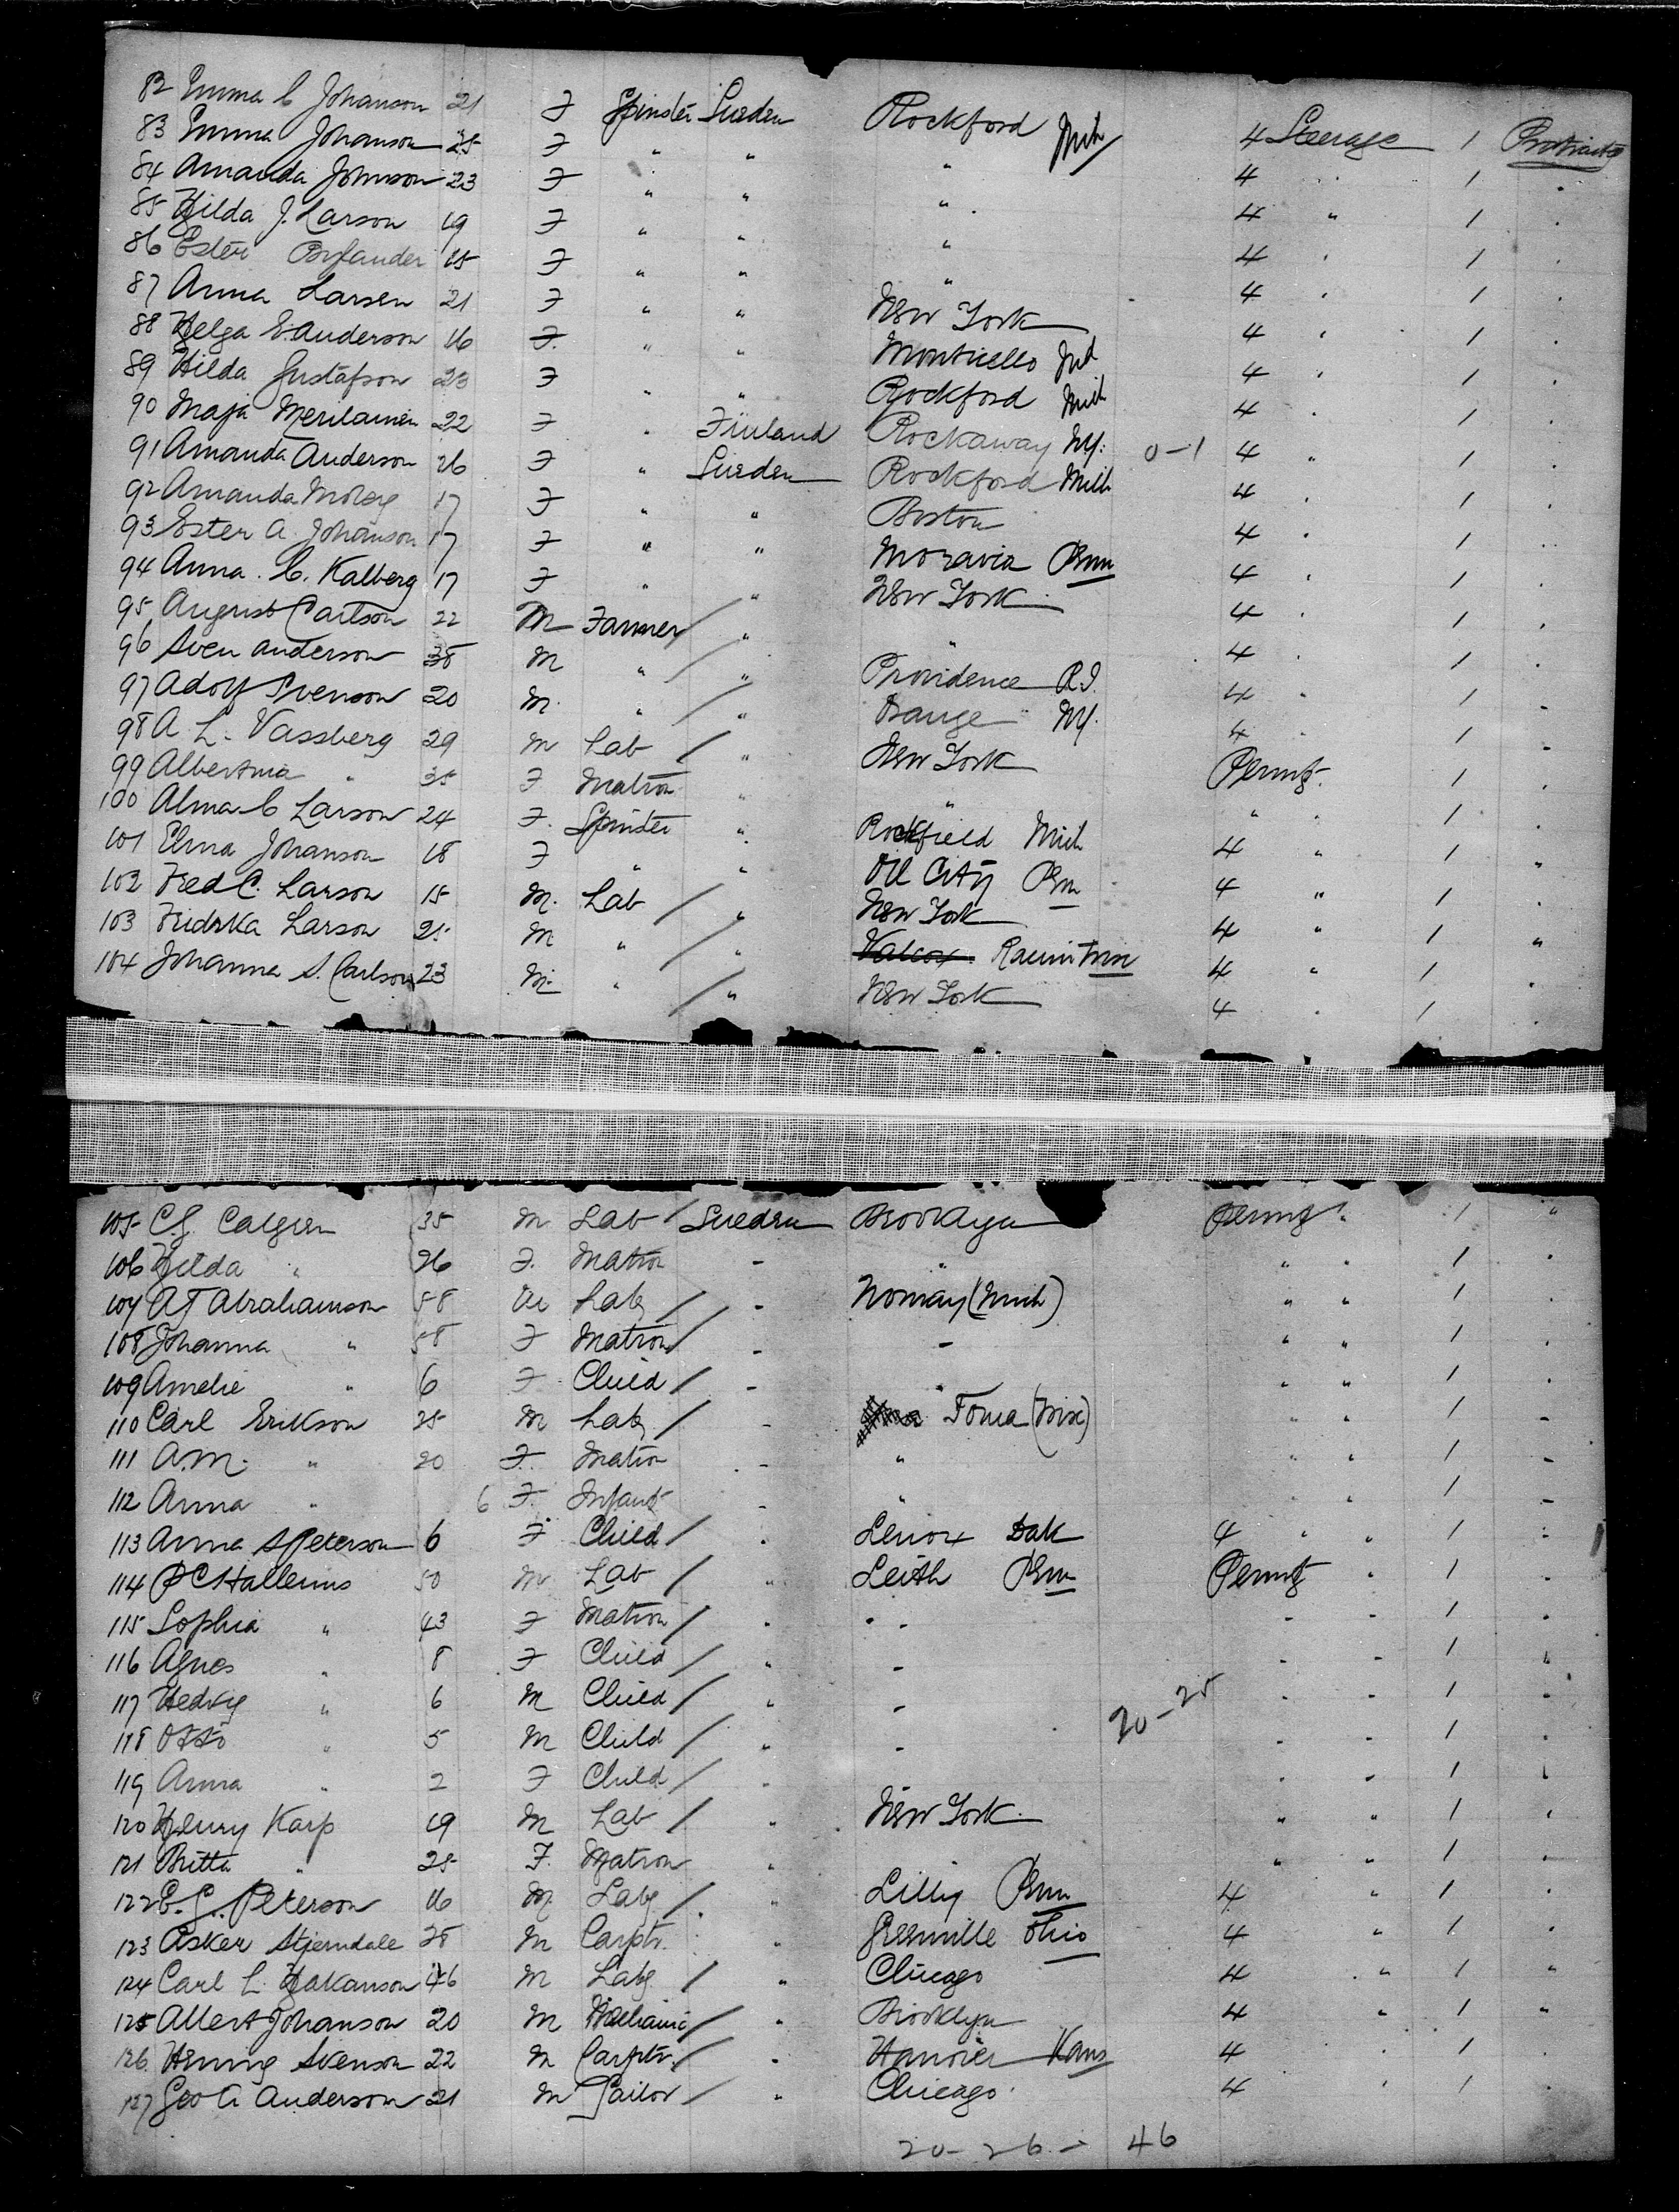 82 Emma C Johanson 21 F Spinster Sweden Rockford Mich 4 Steerage 1 Protracted
83 Emma Johanson 25 F " " " 4 " 1 "
84 Amanda Johnson 23 F " " " 4 " 1 "
85 Hilda J. Larson 19 F " " " 4 " 1 "
86 Ester Bylander 15 F " " " 4 " 1 "
87 Anna Larsen 21 F " " New York 4 " 1 "
88 Helga E. Anderson 16 F. " " Monticello Ind 4 " 1 "
89 Hilda Gustafson 23 F " " Rockford Mich 4 " 1 "
90 Maja Merilainen 22 F " Finland Rockaway NY. 0-1 4 " 1 "
91 Amanda Anderson 26 F " Sweden Rockford Mich 4 " 1 "
92 Amanda Moberg 17 F " " Boston 4 " 1 "
93 Ester A. Johanson 17 F " " Moravia Penn 4 " 1 "
94 Anna C. Kalberg 17 F " " New York 4 " 1 "
95 August Carlson 22 M Farmer / " " 4 " 1 "
96 Sven Anderson 38 M " / " Providence R.I. 4 " 1 "
97 Adolf Svenson 20 M " / " Orange NY. 4 " 1 "
98 A L. Vassberg 29 M Lab / " New York Permt. 1 "
99 Albertina " 35 F Matron " " " " 1 "
100 Alma C Larson 24 F. Spinster " Rockfield Mich 4 " 1 "
101 Elma Johanson 18 F " " Oil City Penn 4 " 1 "
102 Fred C. Larson 18 M. Lab / " New York 4 " 1 "
103 Fridrka Larson 25 M " / " Racine Wisc 4 " 1 "
104 Johanna S. Carlson 23 M " / " New York 4 " 1 "
105 C.G. Calgren 35 M Lab / Sweden Brooklyn Permt " 1 "
106 Hilda " 26 F. Matron " " " " 1 "
107 A J Abrahamson 58 M Lab / " Norway (Mich) " " 1 "
108 Johanna " 58 F Matron / " " " " 1 "
109 Amelie " 6 F Child / " " " " 1 "
110 Carl Erikson 25 M Lab / " Toma (Wisc) " " 1 "
111 A.M. " 20 F. Matron " " " " 1 "
112 Anna " 6 F. Infant " " " " 1 "
113 Anna S Peterson 6 F Child / " Lenox Dak 4 " " 1 "
114 P C Hallenius 50 M Lab / " Leith Penn Permt " 1 "
115 Sophia " 43 F Matron / " " " " " 1 "
116 Agnes " 8 F Child / " " " " 1 "
117 Hedvig " 6 M Child / " " 20-25 " " 1 "
118 Otto " 5 M Child / " " " " 1 "
119 Anna " 2 F Child / " " " " 1 "
120 Henry Karp 19 M Lab / " New York " " 1 "
121 Britta " 25 F. Matron " " " " 1 "
122 E. G. Peterson 16 M Lab / " Lilly Penn 4 " 1 "
123 Asker Stjerndale 28 M Carptr. " Greenville Ohio 4 " 1 "
124 Carl L. Hakanson 46 M Lab / " Chicago 4 " 1 "
125 Albert Johanson 20 M Mechanic / " Brooklyn 4 " 1 "
126. Henning Svenson 22 M Carptr. / " Hanover Kans 4 " 1 "
127 Geo A Anderson 21 M Tailor / " Chicago 4 " 1 "
20-26- 46